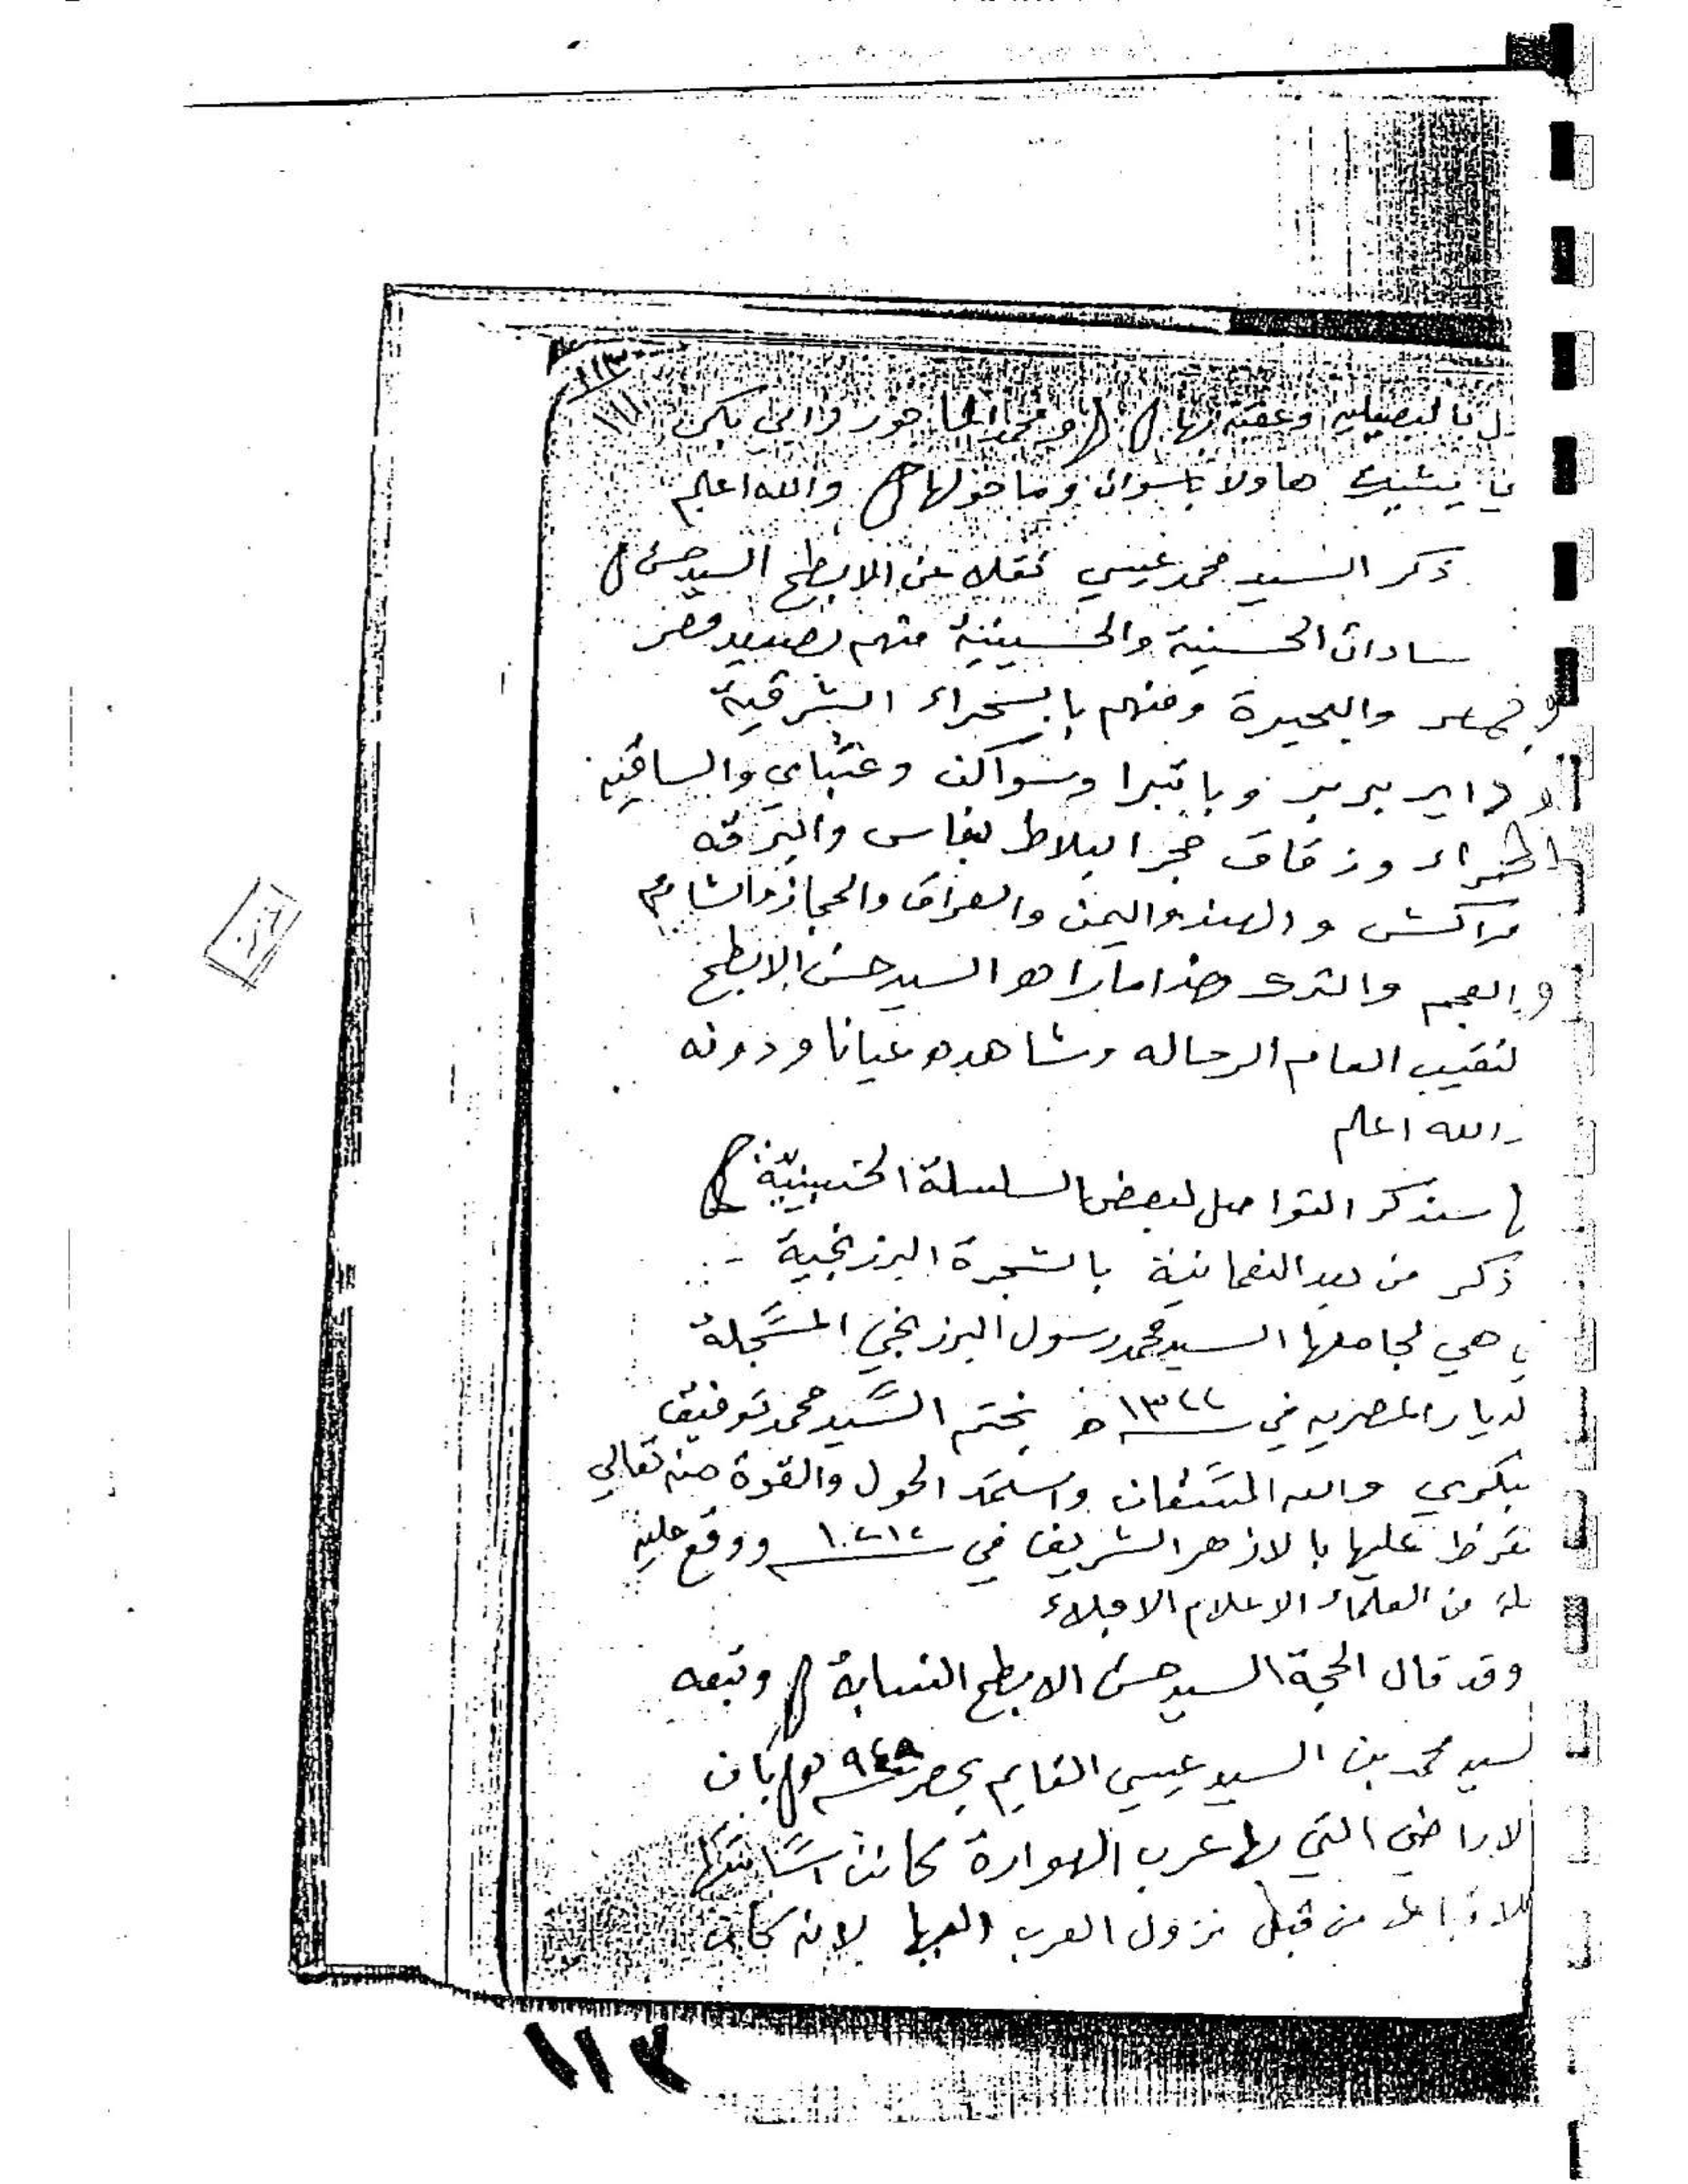 وعقبه بها محمد الماحور وابي بكر
هاولا باسوان وما حولها والله اعلم
ذكر السيد محمد عيسي نقلا عن الابطح السيد حسن
سادات الحسنية والحسينية منهم بصعيد مصر
والبحيرة ومنهم بالسحراء الشرقية
بربر وباتبرا وسواكن وعتباي والساقيه
الحمراء وزقاق حجر البلاط بفاس والبرقه
مراكش والهند واليمن والعراق والحجاز والشام
والعجم والترك هذا ما راه السيد حسن الابطح
لنقيب العام الرحاله وشاهده عيانا ودونه
والله اعلم
سنذكر التواصل لبعض السلسلة الحسينية
ذكر من بعد النعمانية بالشجرة البرزنجية
هي لجامعها السيد محمد رسول البرزنجي المسجلة
لديار المصريه في ١٣٢٢ ه بختم السيد محمد توفيق
بكري والله المستعان واستمد الحول والقوة منه تعالي
تقرظ عليها بالازهر الشريف في ووقع عليه
من العلماء الاعلام الاجلاء
وقد قال الحجة السيد حسن الابطح النسابة وتبعه
لسيد محمد بن السيد عيسي القايم بمصر بان
لاراضي التي بها عرب الهوارة كانت
من قبل نزول العرب اليها لانه كان
١١٢